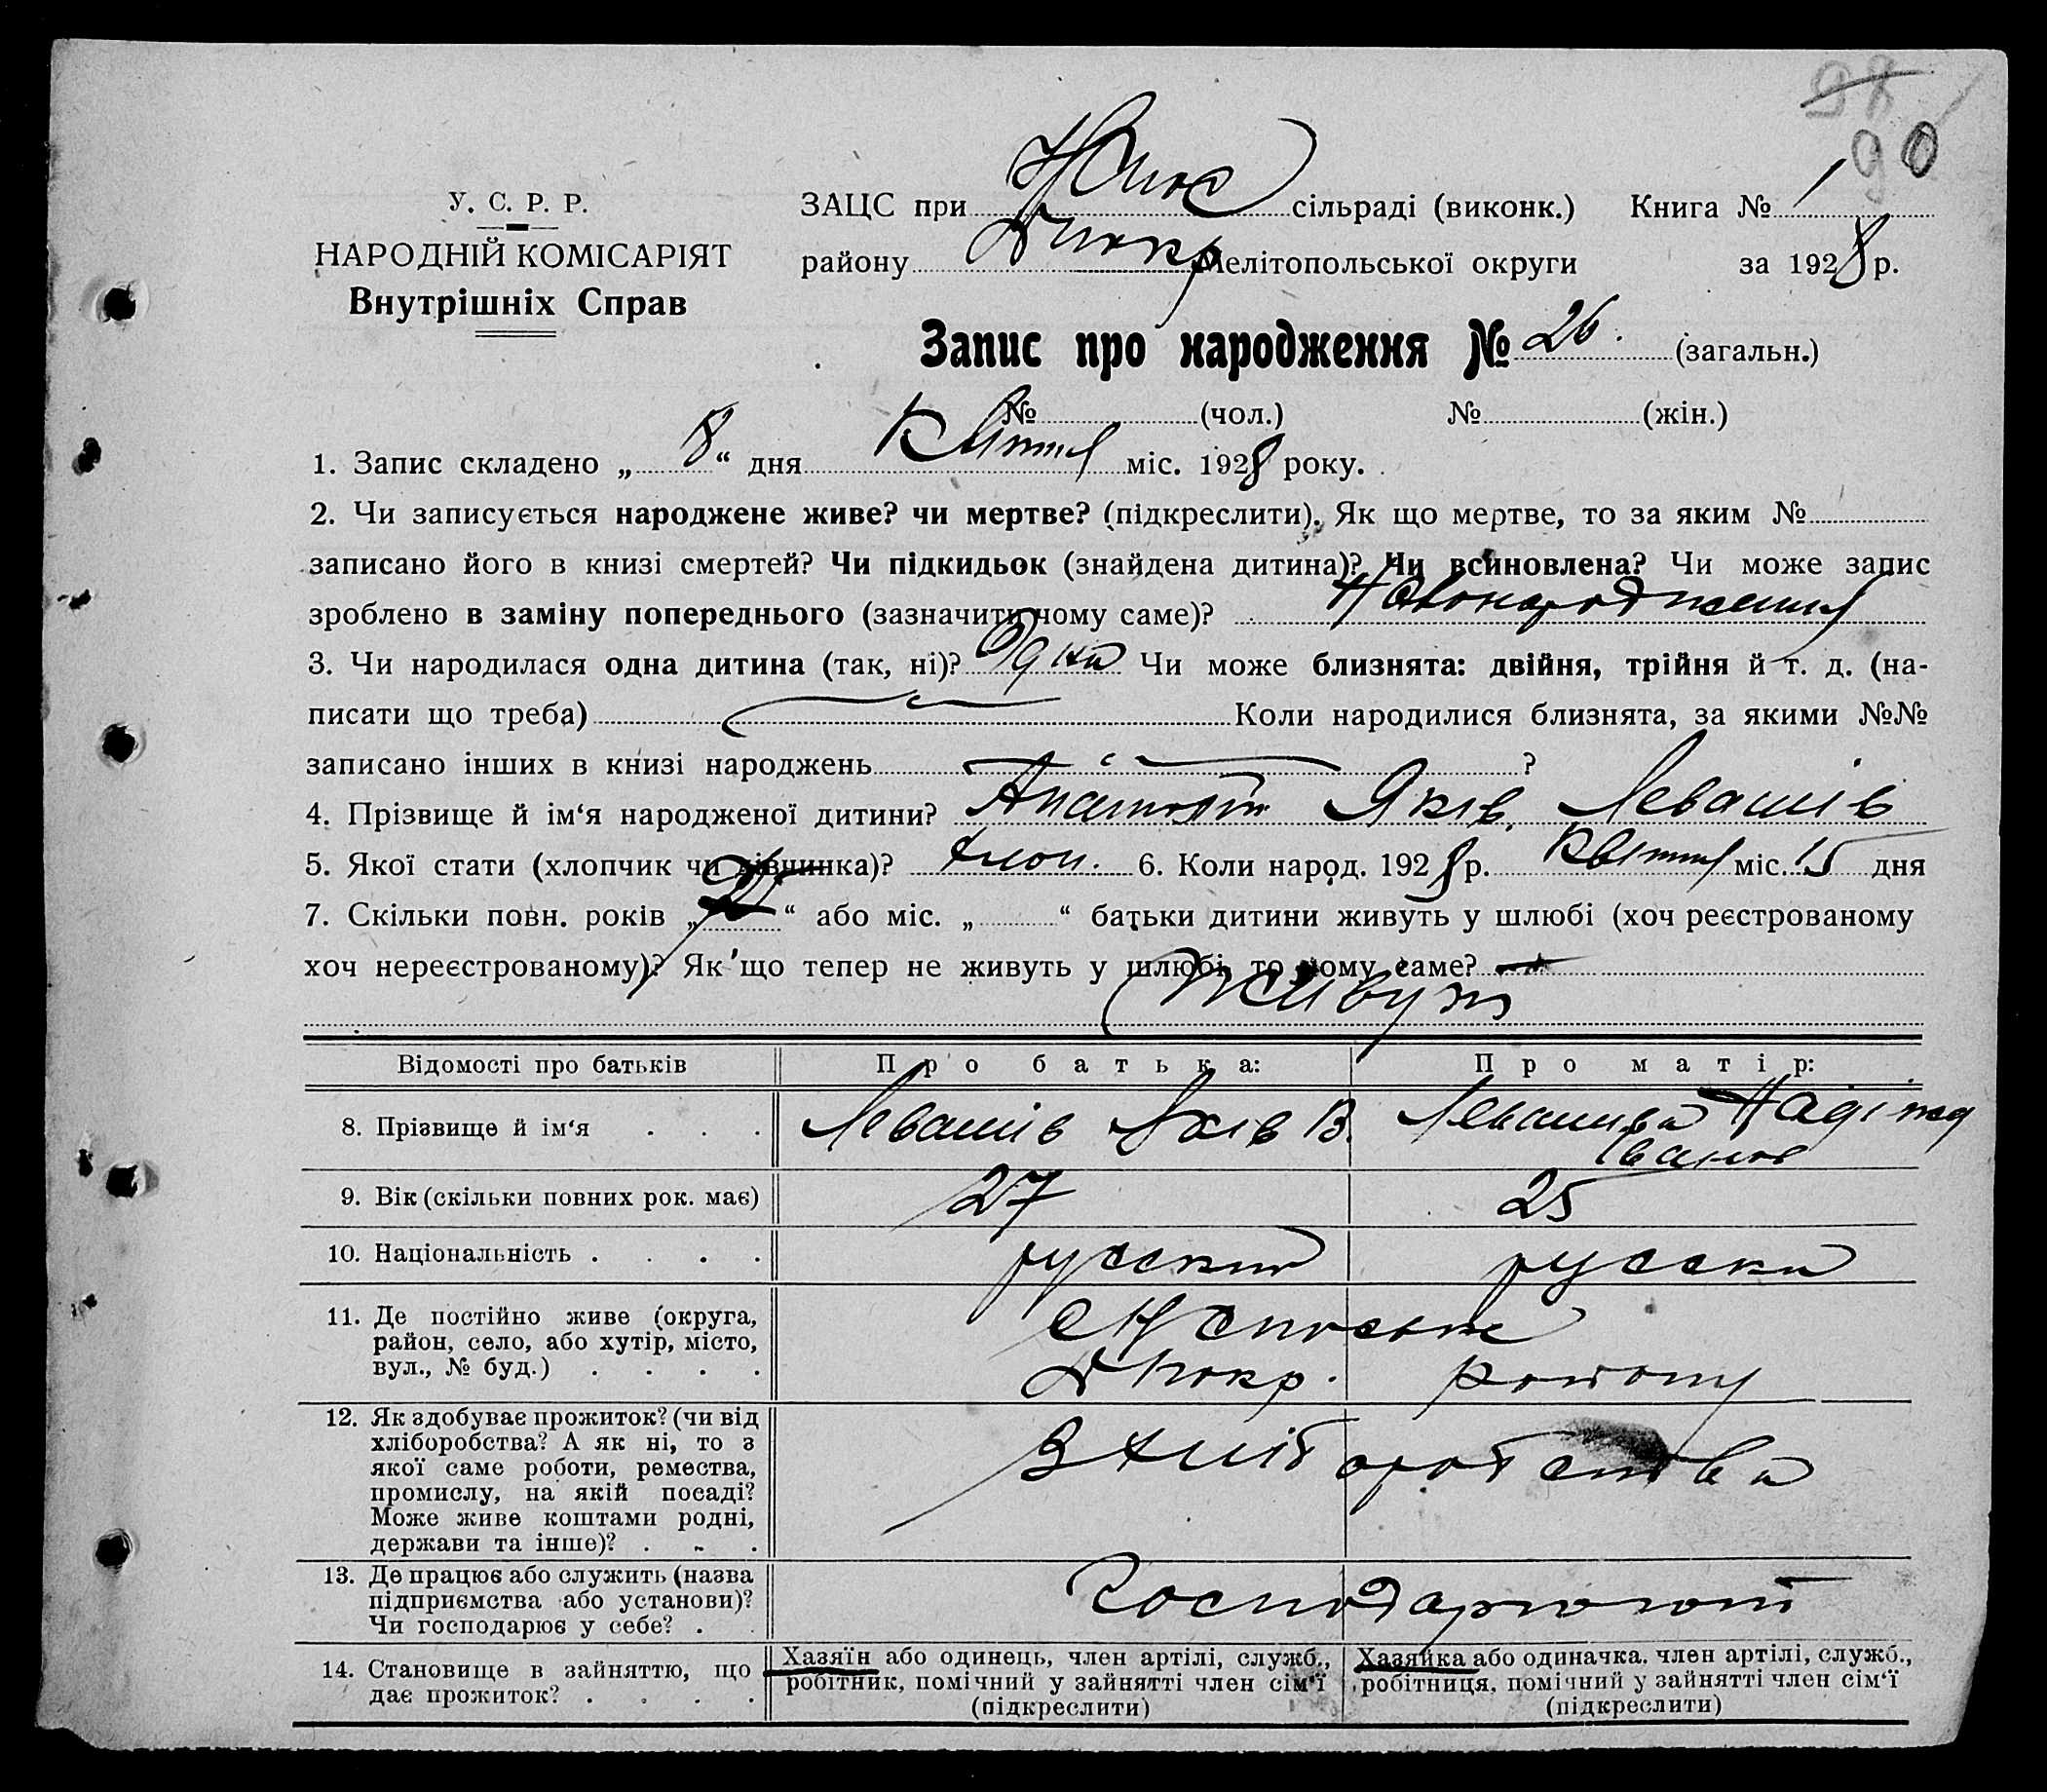 98
90
У. С. Р. Р.
НАРОДНІЙ КОМІСАРІЯТ
Внутрішніх Справ
ЗАЦС при сільраді (виконк.) Книга № 1
району Мелітопольської округи за 1928 р.
Запис про народження № 26. (загальн.)
№ (чол.) № (жін.)
1. Запис складено „ 8 “ дня Квітня міс. 1928 року.
2. Чи записується народжене живе? чи мертве? (підкреслити). Як що мертве, то за яким №
записано його в книзі смертей? Чи підкидьок (знайдена дитина)? Чи всиновлена? Чи може запис
зроблено в заміну попереднього (зазначити чому саме)? Новонародження
3. Чи народилася одна дитина (так, ні)? Одна Чи може близнята: двійня, трійня й т. д. (на-
писати що треба) Коли народилися близнята, за якими №№
записано інших в книзі народжень ?
4. Прізвище й ім‘я народженої дитини? Яків. Левашів
5. Якої стати (хлопчик чи дівчинка)? хлоп. 6. Коли народ. 1928 р. Квітня міс. 15 дня
7. Скільки повн. років „ “ або міс. „ “ батьки дитини живуть у шлюбі (хоч реєстрованому
хоч нереєстрованому)? Як що тепер не живуть у шлюбі, то чому саме?
Живут
Відомості про батьків Про батька: Про матір:
8. Прізвище й ім‘я . . . Левашів Яків В. Левашива Надіжд
Іванов
9. Вік (скільки повних рок. має) 27 25
10. Національність . . . . русский русска
11. Де постійно живе (округа,
район, село, або хутір, місто,
вул., № буд.) . . . .
Якокр. району
12. Як здобуває прожиток? (чи від
хліборобства? А як ні, то з
якої саме роботи, ремества,
промислу, на якій посаді?
Може живе коштами родні,
держави та інше)? . . .
З хліборобства
13. Де працює або служить (назва
підприємства або установи)?
Чи господарює у себе? .
Господарюют
14. Становище в зайняттю, що
дає прожиток? . . . .
Хазяїн або одинець, член артілі, служб.,
робітник, помічний у зайнятті член сім‘ї
(підкреслити)
Хазяйка або одиначка. член артілі, служб.,
робітниця, помічний у зайнятті член сім‘ї
(підкреслити)